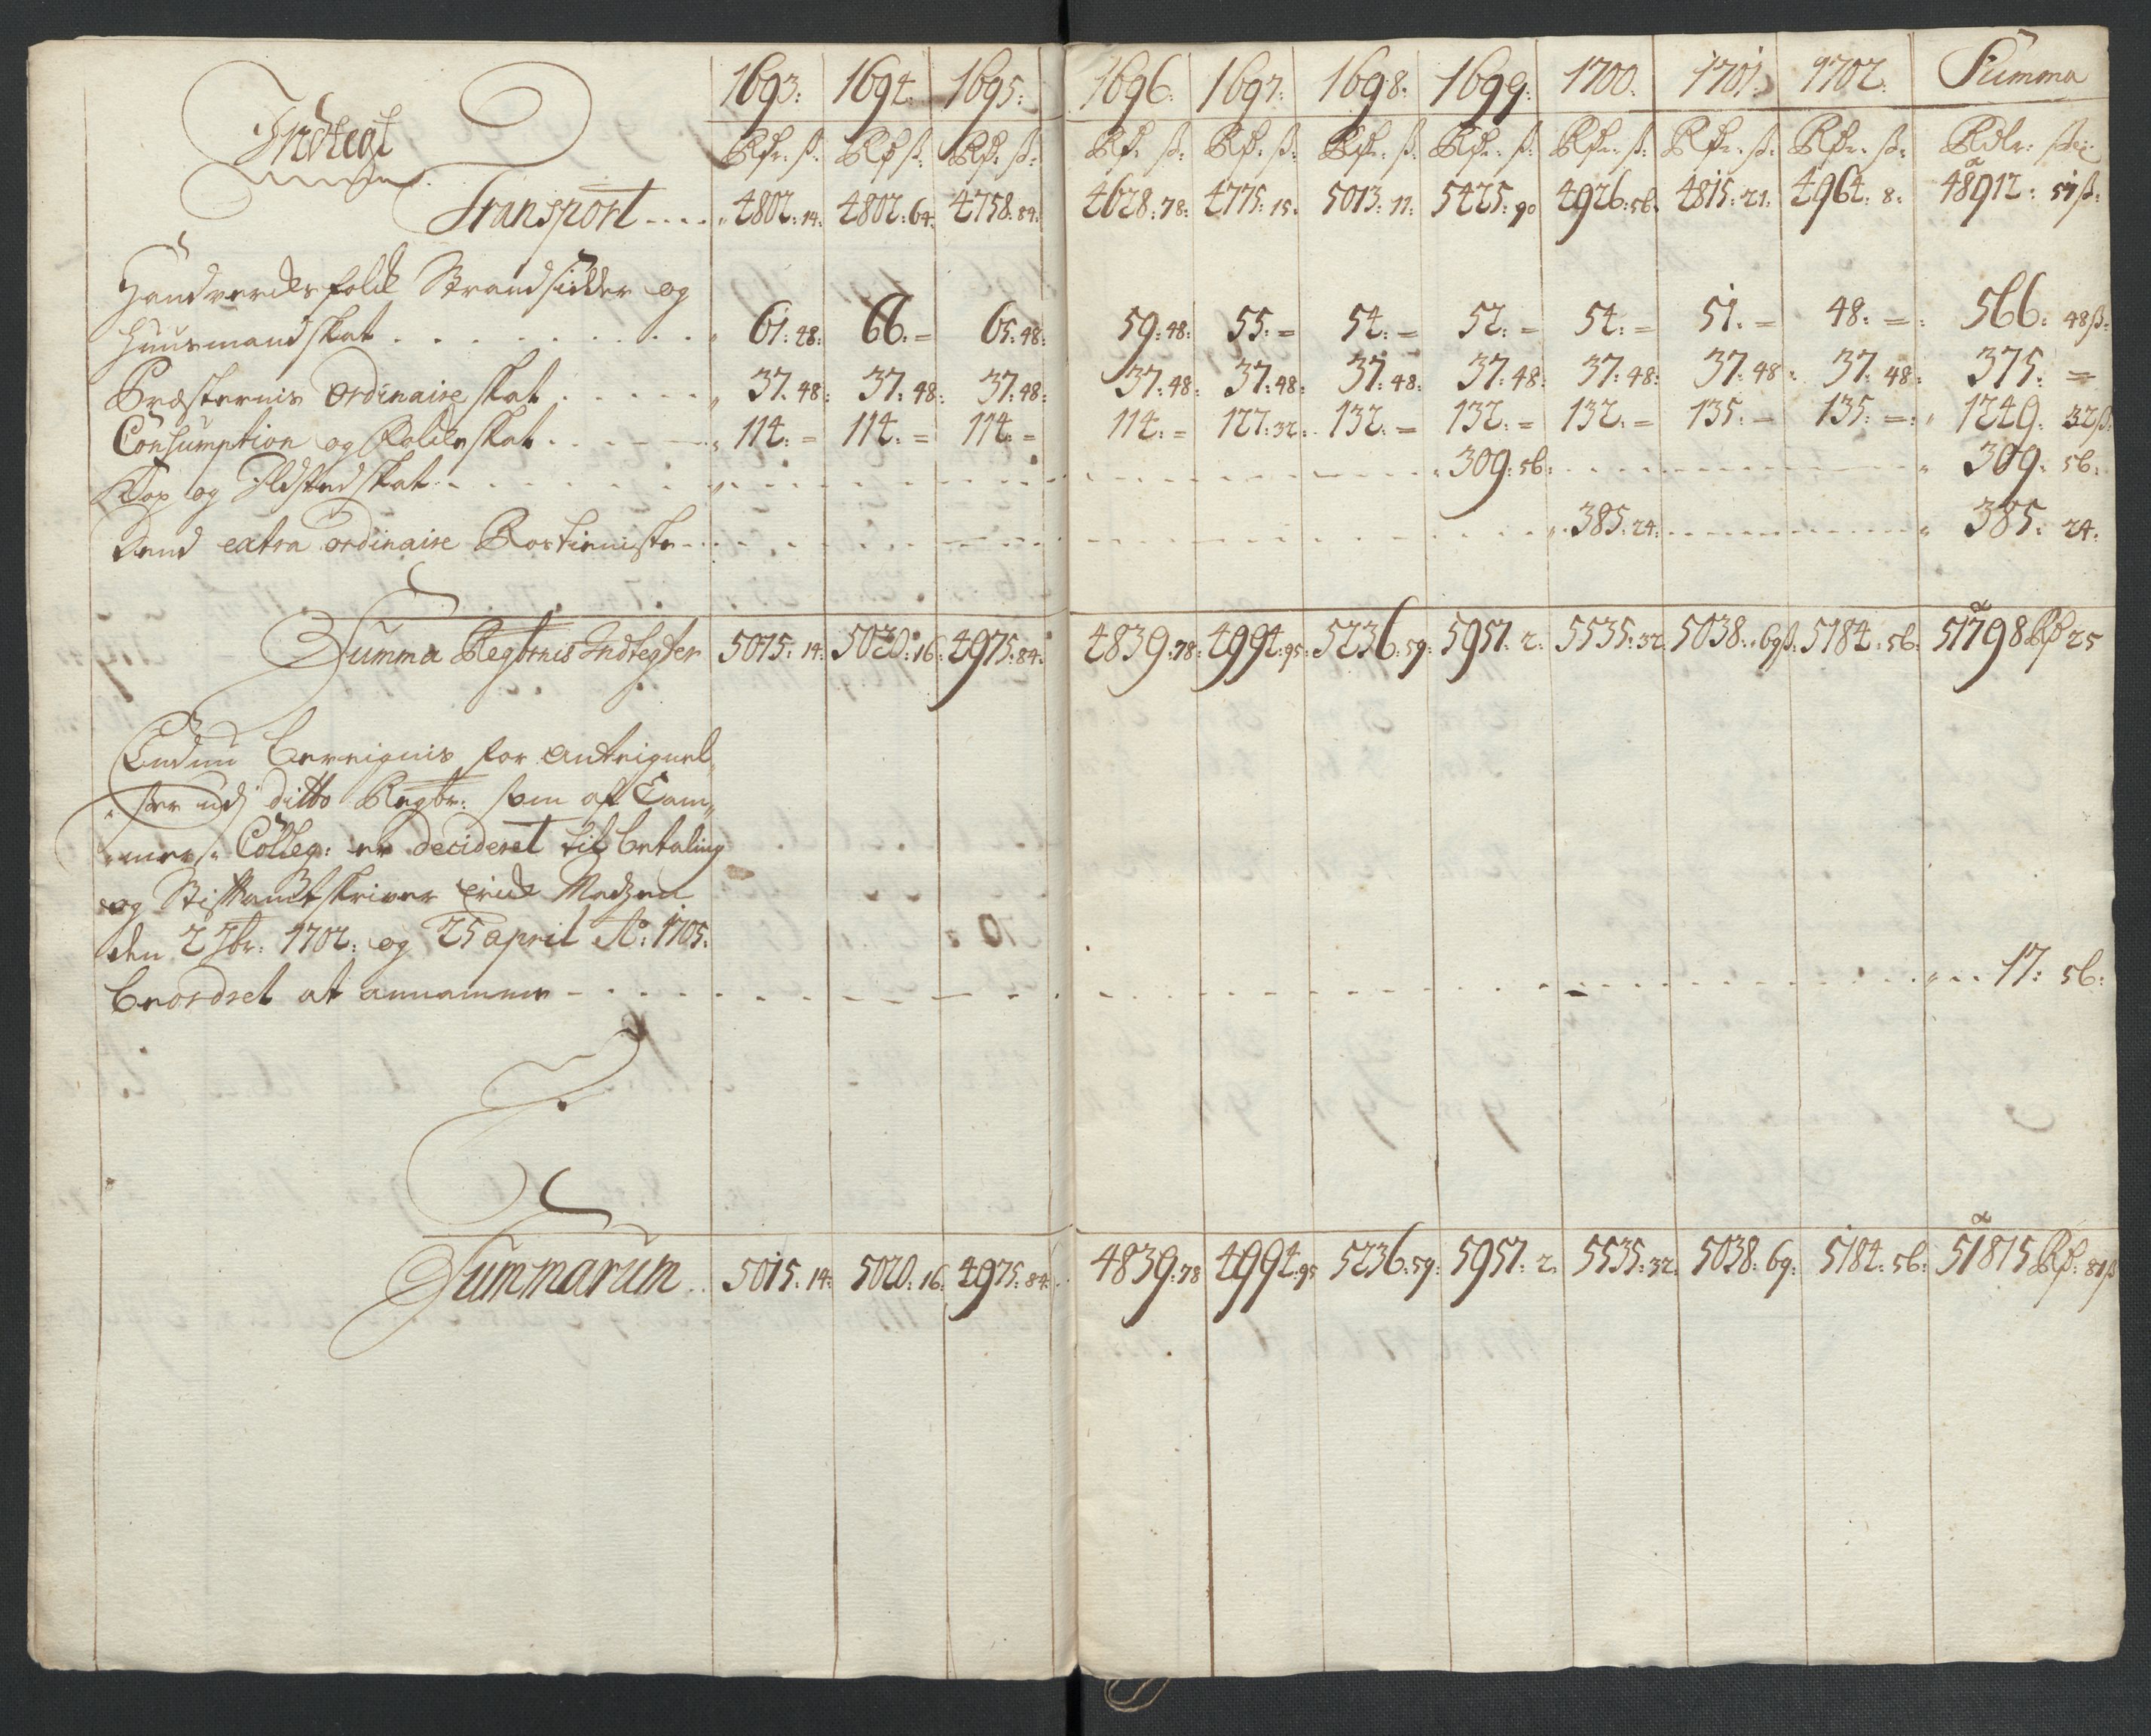 Indtegt 1693: 1694: 1695: 1696: 1697: 1698: 1699: 1700: 1701: 1702: Summa
Rdr. ß: Rd ß: Rd. ß: Rd. ß: Rd. ß: Rdr. ß: Rdr. ß: Rdr. ß: Rdr. ß: Rdr. ß: Rdlr:
Transport .... 4802: 14: 4802: 64: 4758: 84: 4628: 78: 4775: 15. 5013: 11: 5425: 90 4926: 56. 4815: 21: 4964: 8: 48912: 51 ß:
Handverksfolk Strandsidder og
Huusmandskat . . . . . . . 61: 48: 66: = 65: 48: 59: 48: 55: = 54: = 52: = 54: = 51: = 48: =: 566: 48 ß:
Præsternis Ordinaire skat . . . . . 37: 48: 37: 48: 37: 48: 37: 48: 37: 48: 37: 48: 37: 48: 37: 48: 37: 48: 37: 48: 375: =
Consumption og Folkeskat . . . . 114: = 114: = 114: = 114: = 127: 32: 132: = 132: = 132: = 135: = 135: =: 1249: 32 ß:
Kop og Ildstedskat . . . . . . 309: 56: 309: 56:
Dend extra ordinaire Rostieniste . . 385: 24: 385: 24:
Summa Regtbrnis Indtegter 5015: 14: 5020: 16: 4975: 84: 4839: 78: 4994: 95: 5236: 59: 5951: 2: 5535: 32 5038: 69 ß: 5184: 56: 51798 Rd 25
Endnu bereignis for Anteignel
ser udj ditto Regtbr: som af Cam,,
mer Colleg: er decideret til betaling
og Stiftamtskriver Erick Madzen
den 2 7br: 1702: og 25 april Ao: 1705:
beordret at annamme - . . . 17: 56:
Summarum . . 5015: 14: 5020: 16: 4975: 84: 4839: 78 4994: 95 5236: 59: 5951: 2: 5535: 32: 5038: 69: 5184: 56: 51815 Rd: 81 ß